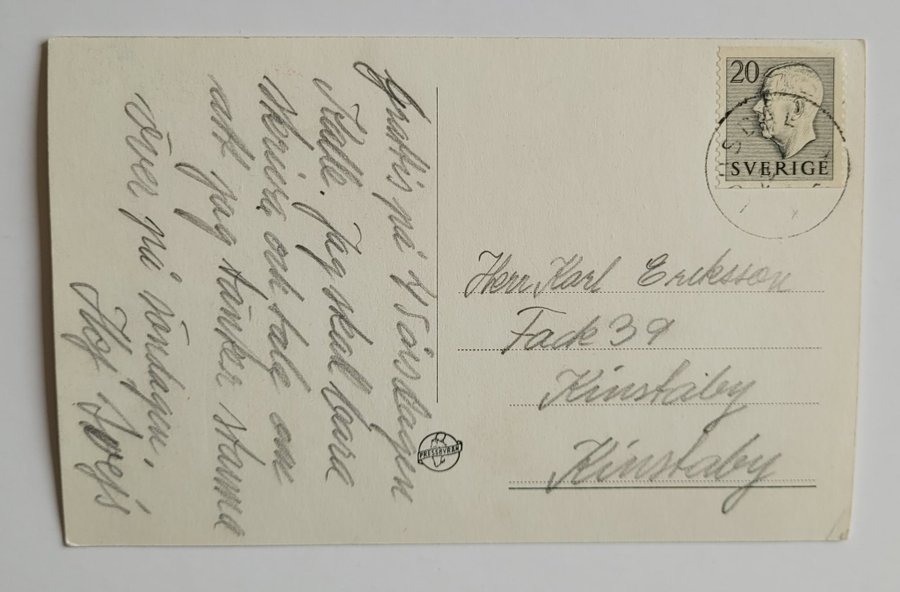 Grattis på 45 årsdagen
Kalle. Jag skal bara
skriva och tala om
att jag tänker stanna
över på söndagen.
Hej
20
SVERIGE
PRESSBYRÅN
Herr Karl Eriksson
Fack 39
Kinstaby
Kinstaby